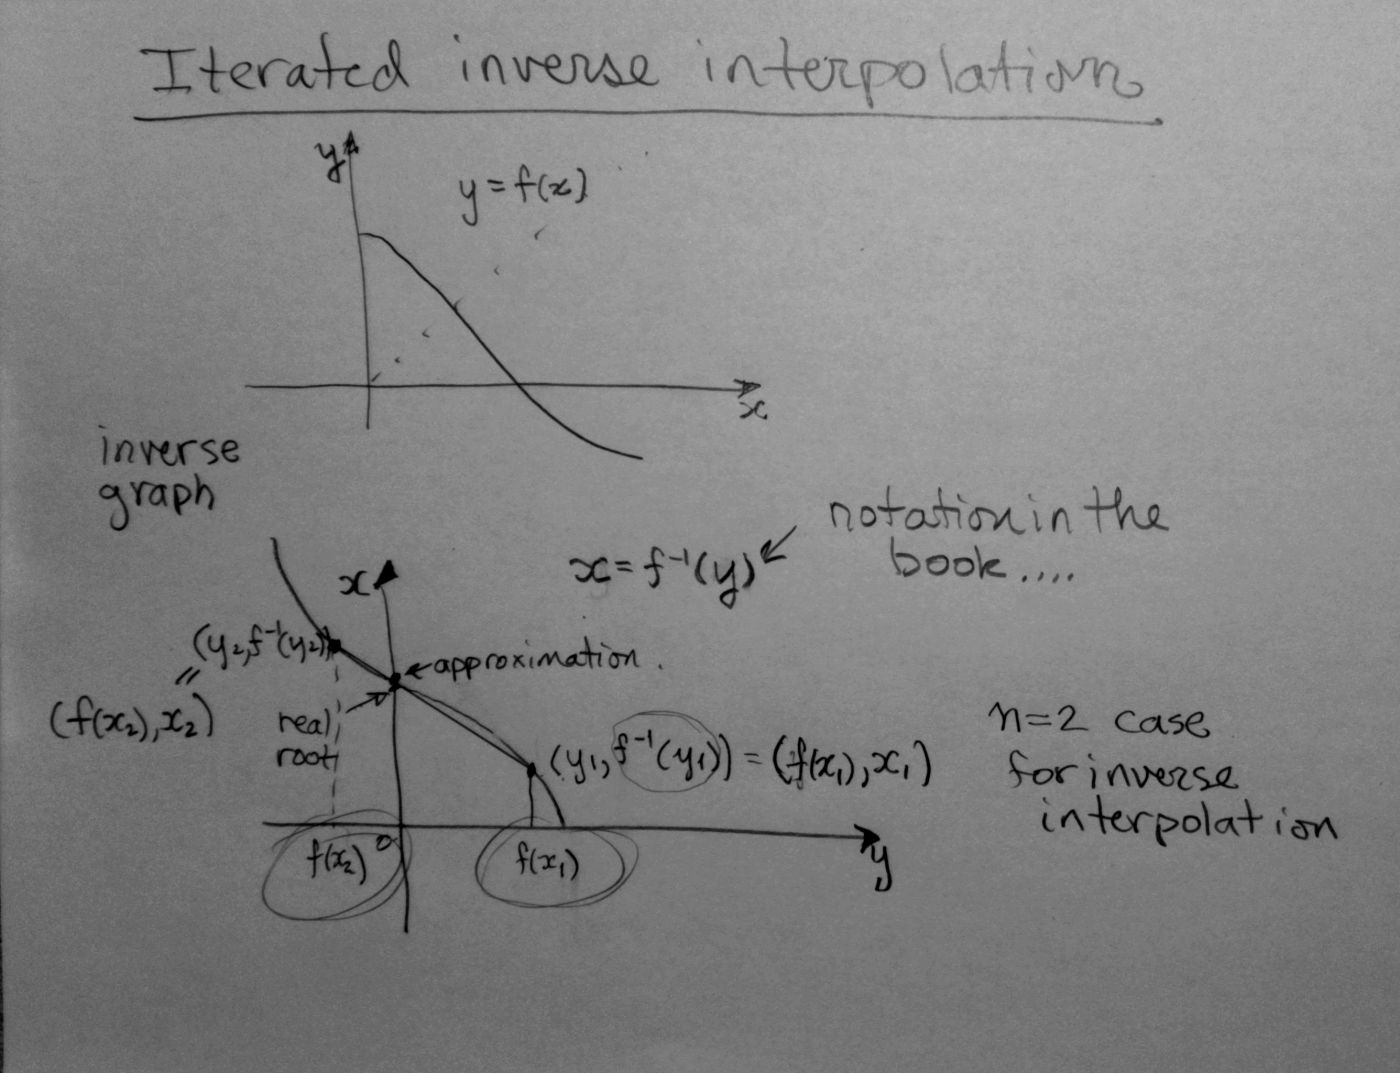 Iterated inverse interpolation
y
y = f(x)
x
inverse
graph
notation in the
book....
x = f⁻¹(y)
x
(y₂, f⁻¹(y₂))
approximation.
(f(x₂), x₂)
real
root
(y₁, f⁻¹(y₁)) = (f(x₁), x₁)
n=2 case
for inverse
interpolation
f(x₂)
0
f(x₁)
y